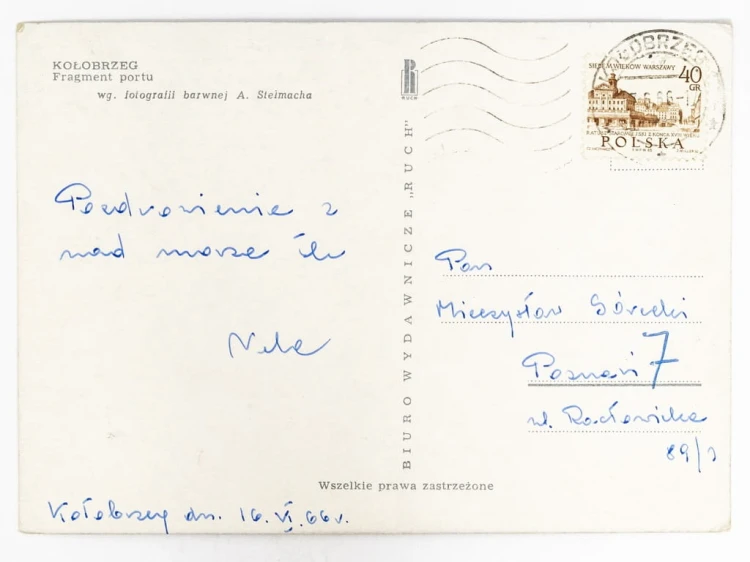 KOŁOBRZEG
Fragment portu
wg. fotografii barwnej A. Steimacha
RUCH
BIURO WYDAWNICZE „RUCH"
KOŁOBRZEG
SIEDEM WIEKÓW WARSZAWY
40 GR
POLSKA
Pozdrowienie z
nad morza śle
Nela
Pan
Mieczysław Górecki
Poznań 7
ul. Racławicka
89/
Wszelkie prawa zastrzeżone
Kołobrzeg dn. 16.VI.66r.